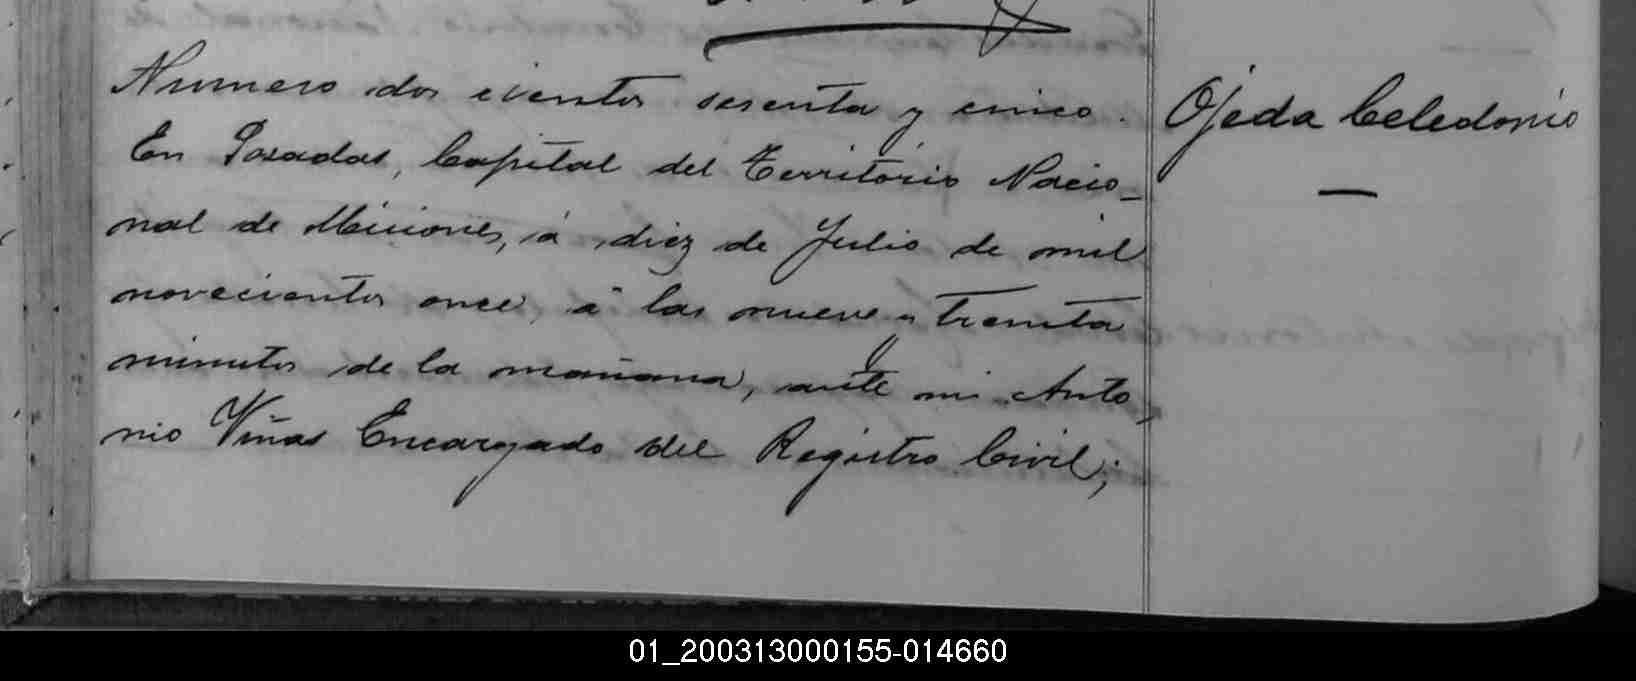 Numero dos cientos sesenta y cinco.
Ojeda Celedonio
En Posadas, Capital del Territorio Nacio-
nal de Misiones, á diez de Julio de mil
novecientos once, á las nueve y treinta
minutos de la mañana, ante mi Anto-
nio Viñas Encargado del Registro Civil;
01_200313000155-014660